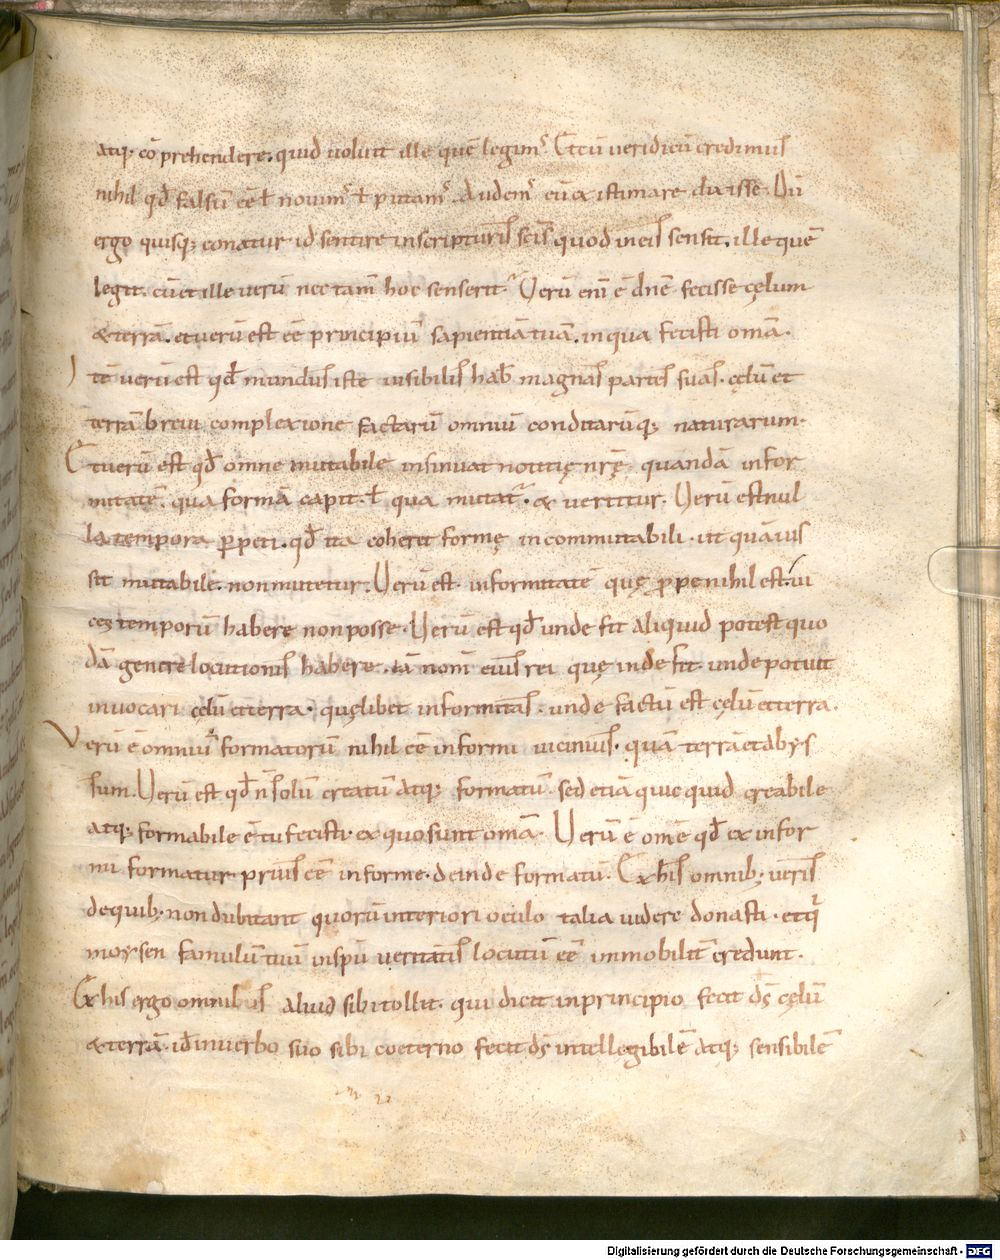 atq; cōprehendere. quid uoluit ille quē legimꝰ. Et cū ueridicū credimus
nihil qđ falsū eē ł nouimꝰ ł putamꝰ. Audemꝰ eū existimare dixisse. Dū
ergo quisq; conatur id sentire in scripturis scīs quod in eis sensit. ille quē
legit. cū et ille uerū nec tam̄ hoc senserit. Uerū eni ē dn̄e fecisse cęlum
& terrā. et uerū est eē principiū sapientiā tuā. in qua fecisti om̄a.
Itē uerū est qđ mundus iste uisibilis hab& magnas partes suas. cęlū et
terrā breui complexione factarū omniū conditarūq; naturarum.
Et uerū est qđ omne mutabile insinuat notitię nr̄ę. quandā infor
mitatē. qua formā capit. ł qua mutat᷑. & uertitur. Uerū est nul
la tempora ꝑpeti. qđ ita coheret formę incommutabili. ut quāuis
sit mutabile. non mutetur. Uerū est. informitatē quę ꝓpe nihil est. ui
ces temporū habere non posse. Uerū est qđ unde fit aliquid potest quo
dā genere locutionis habere. iā nom̄ eius rei quę inde fit. unde potuit
inuocari cęlū et terra. quęlibet informitas. unde factū est cęlū et terra.
Uerū ē omniū formatorū nihil eē informi uicinius. quā terrā et abys
sum. Uerū est qđ n̄ solū creatū atq; formatū. sed etiā quicquid creabile
atq; formabile ē tu fecisti. ex quo sunt om̄a. Uerū ē om̄e qđ ex infor
mi formatur prius eē informe. deinde formatū. Ex his omnib; ueris
de quib; non dubitant quorū interiori oculo talia uidere donasti. et qͥ
moysen famulū tuū in sp̄u ueritatis locutū eē immobilit̄ credunt.
Ex his ergo omnibus aliud sibi tollit. qui dicit in principio fecit dš cęlū
& terrā. id̄ in uerbo suo sibi coeterno fecit dš intellegibilē atq; sensibilē
Digitalisierung gefördert durch die Deutsche Forschungsgemeinschaft - DFG